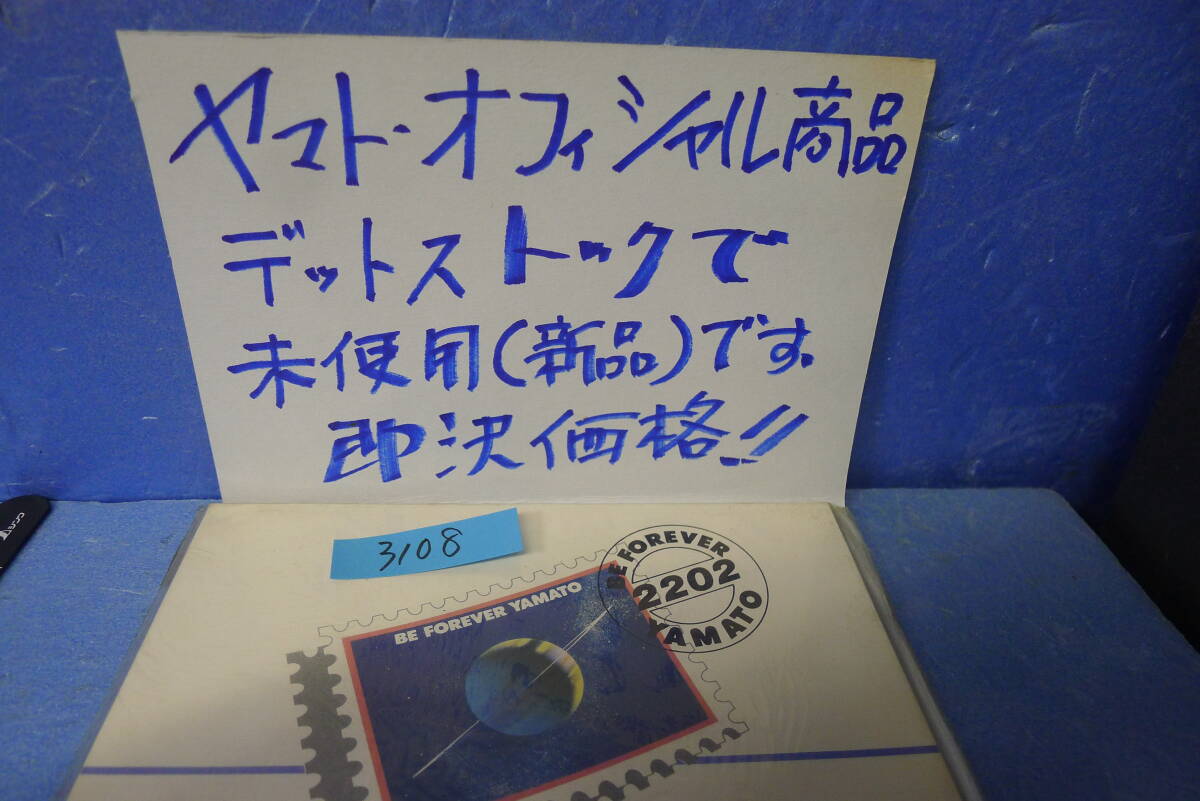 ヤマト・オフィシャル商品
デットストックで
未使用(新品)です。
即決価格!!
3108
BE FOREVER
2202
YAMATO
BE FOREVER YAMATO